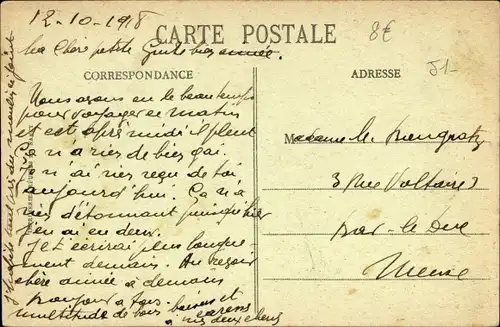 12-10-1918
CARTE POSTALE
8€
Ma chère petite
CORRESPONDANCE
ADRESSE
51-
Nous avons eu le beau temps
pour voyager ce matin
et cet après midi il pleut
Ça n'a rien de bien gai.
Je n'ai rien reçu de toi
aujourd'hui. Ça n'a
rien d'étonnant puisqu'hier
j'en ai eu deux.
Je t'écrirai plus longue-
ment demain. Au revoir
chère aimée à demain
Bonjour à tous
multitude de bons baisers et
caresses
à mes deux chéris
Madame
3 Rue Voltaire 3
Bar-le-Duc
Meuse